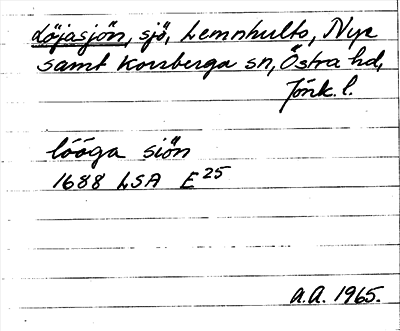 Löjasjön, sjö, Lemnhults, Nye
samt Korsberga sn, Östra hd,
Jönk. l.
lööga siön
1688 LSA E25
A.A. 1965.